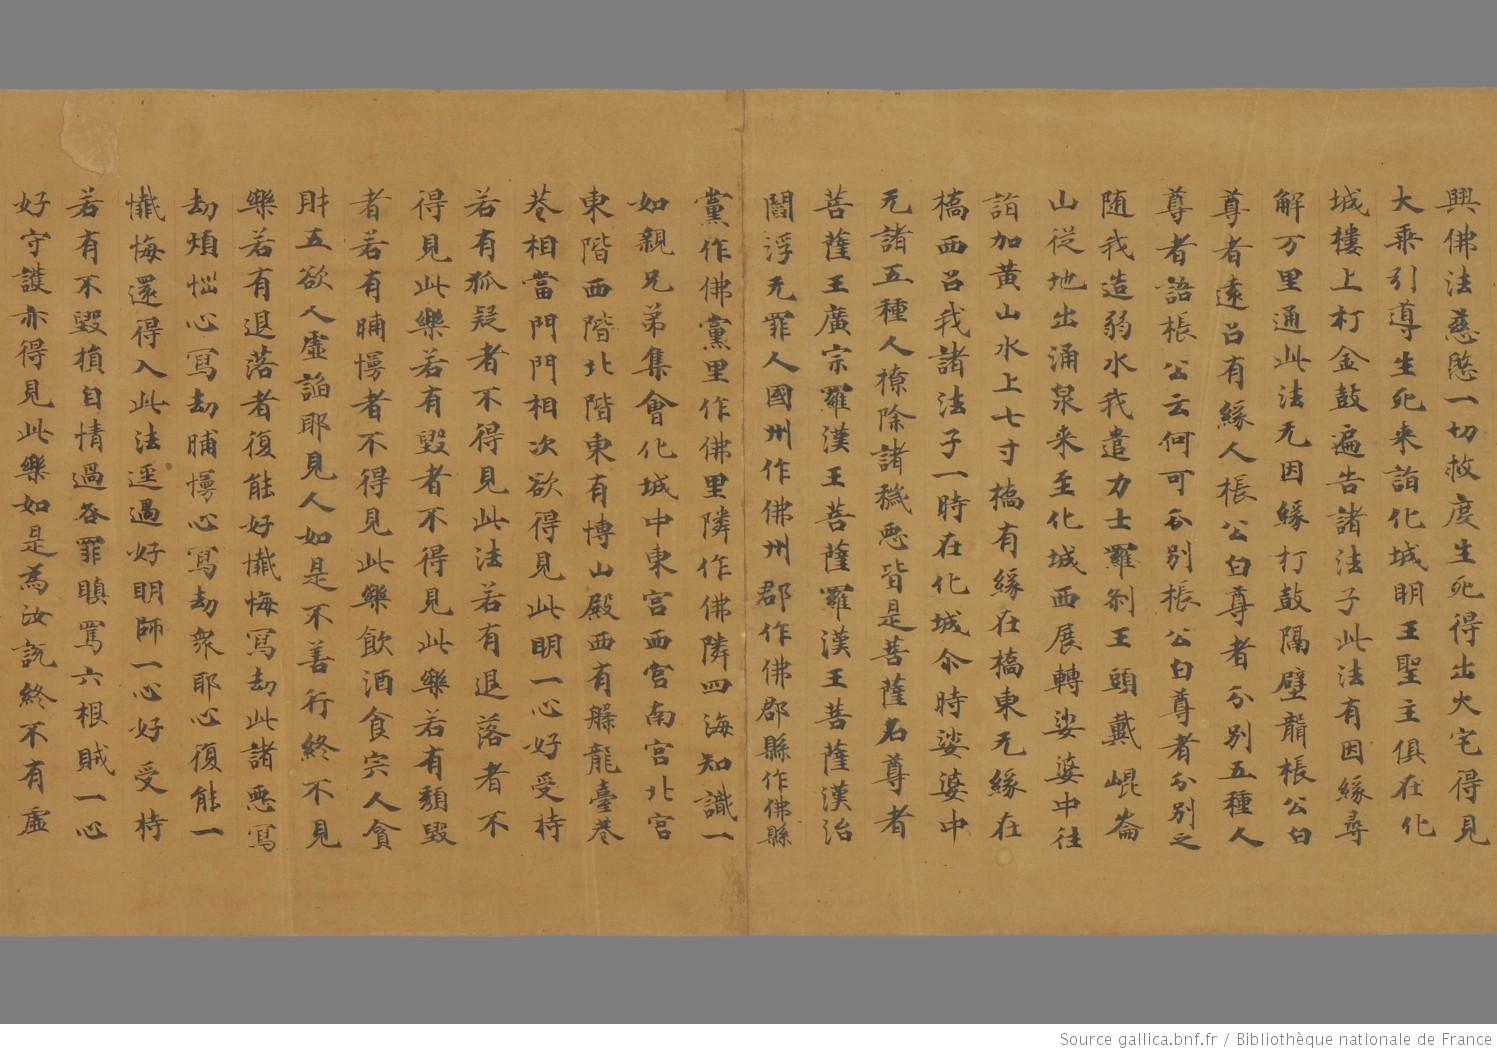 興佛法慈愍一切救度生死得出火宅得見
大乘引導生死来詣化城明王聖主俱在化
城樓上打金鼓遍告諸法子此法有因緣尋
解万里通此法无因緣打鼓隔壁聾棖公白
尊者遠呂有緣人棖公白尊者分別五種人
尊者語棖公云何可分別棖公白尊者分別之
随我造弱水我遣力士羅刹王頭戴崐崙
山從地出涌泉来至化城西展轉娑婆中往
詣加黄山水上七寸橋有緣在橋東无緣在
橋西呂我諸法子一時在化城尒時娑婆中
无諸五種人撩除諸穢惡皆是菩薩名尊者
菩薩王廣宗羅漢王菩薩羅漢王菩薩漢治
閻浮无罪人國州作佛州郡作佛郡縣作佛縣
黨作佛黨里作佛里隣作佛隣四海知識一
如親兄弟集會化城中東宫西宫南宫北宫
東階西階北階東有博山殿西有龍臺巷
巷相當門門相次欲得見此明一心好受持
若有狐疑者不得見此法若有退落者不
得見此樂若有毀者不得見此樂若有頽毀
者若有晡慢者不得見此樂飲酒食宍人貪
財五欲人虛諂耶見人如是不善行終不見
樂若有退落者復能好懺悔寫却此諸惡寫
却煩惱心寫却晡慢心寫却衆耶心復能一
懺悔還得入此法逕遇好明師一心好受持
若有不毀損自情過咎罪瞋罵六根賊一心
好守護亦得見此樂如是為汝説終不有虛